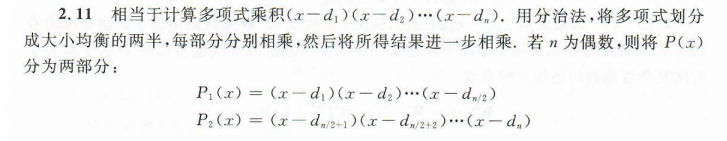 2.11 相当于计算多项式乘积(x-d₁)(x-d₂)…(x-dₙ). 用分治法,将多项式划分
成大小均衡的两半,每部分分别相乘,然后将所得结果进一步相乘. 若 n 为偶数,则将 P(x)
分为两部分:
P₁(x) = (x-d₁)(x-d₂)…(x-d_{n/2})
P₂(x) = (x-d_{n/2+1})(x-d_{n/2+2})…(x-dₙ)